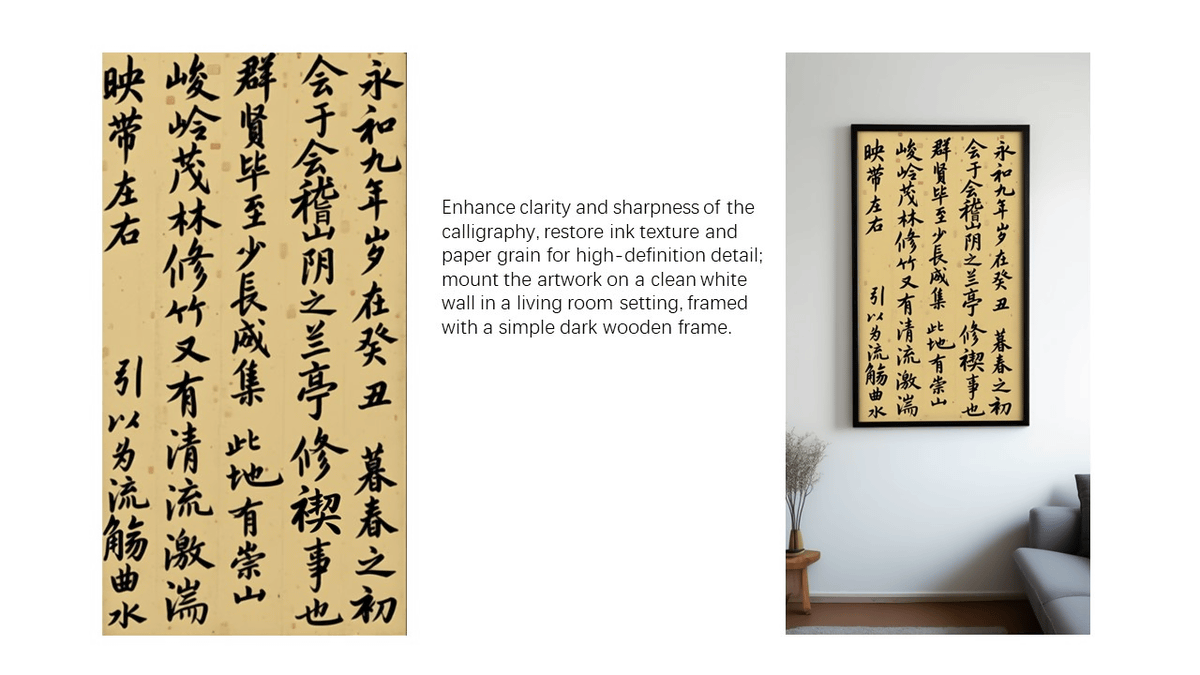 永和九年岁在癸丑 暮春之初
会于会稽山阴之兰亭 修禊事也
群贤毕至少長咸集 此地有崇山
峻岭茂林修竹又有清流激湍
映带左右 引以为流觞曲水
Enhance clarity and sharpness of the
calligraphy, restore ink texture and
paper grain for high-definition detail;
mount the artwork on a clean white
wall in a living room setting, framed
with a simple dark wooden frame.
永和九年岁在癸丑 暮春之初
会于会稽山阴之兰亭 修禊事也
群贤毕至少長咸集 此地有崇山
峻岭茂林修竹又有清流激湍
映带左右 引以为流觞曲水